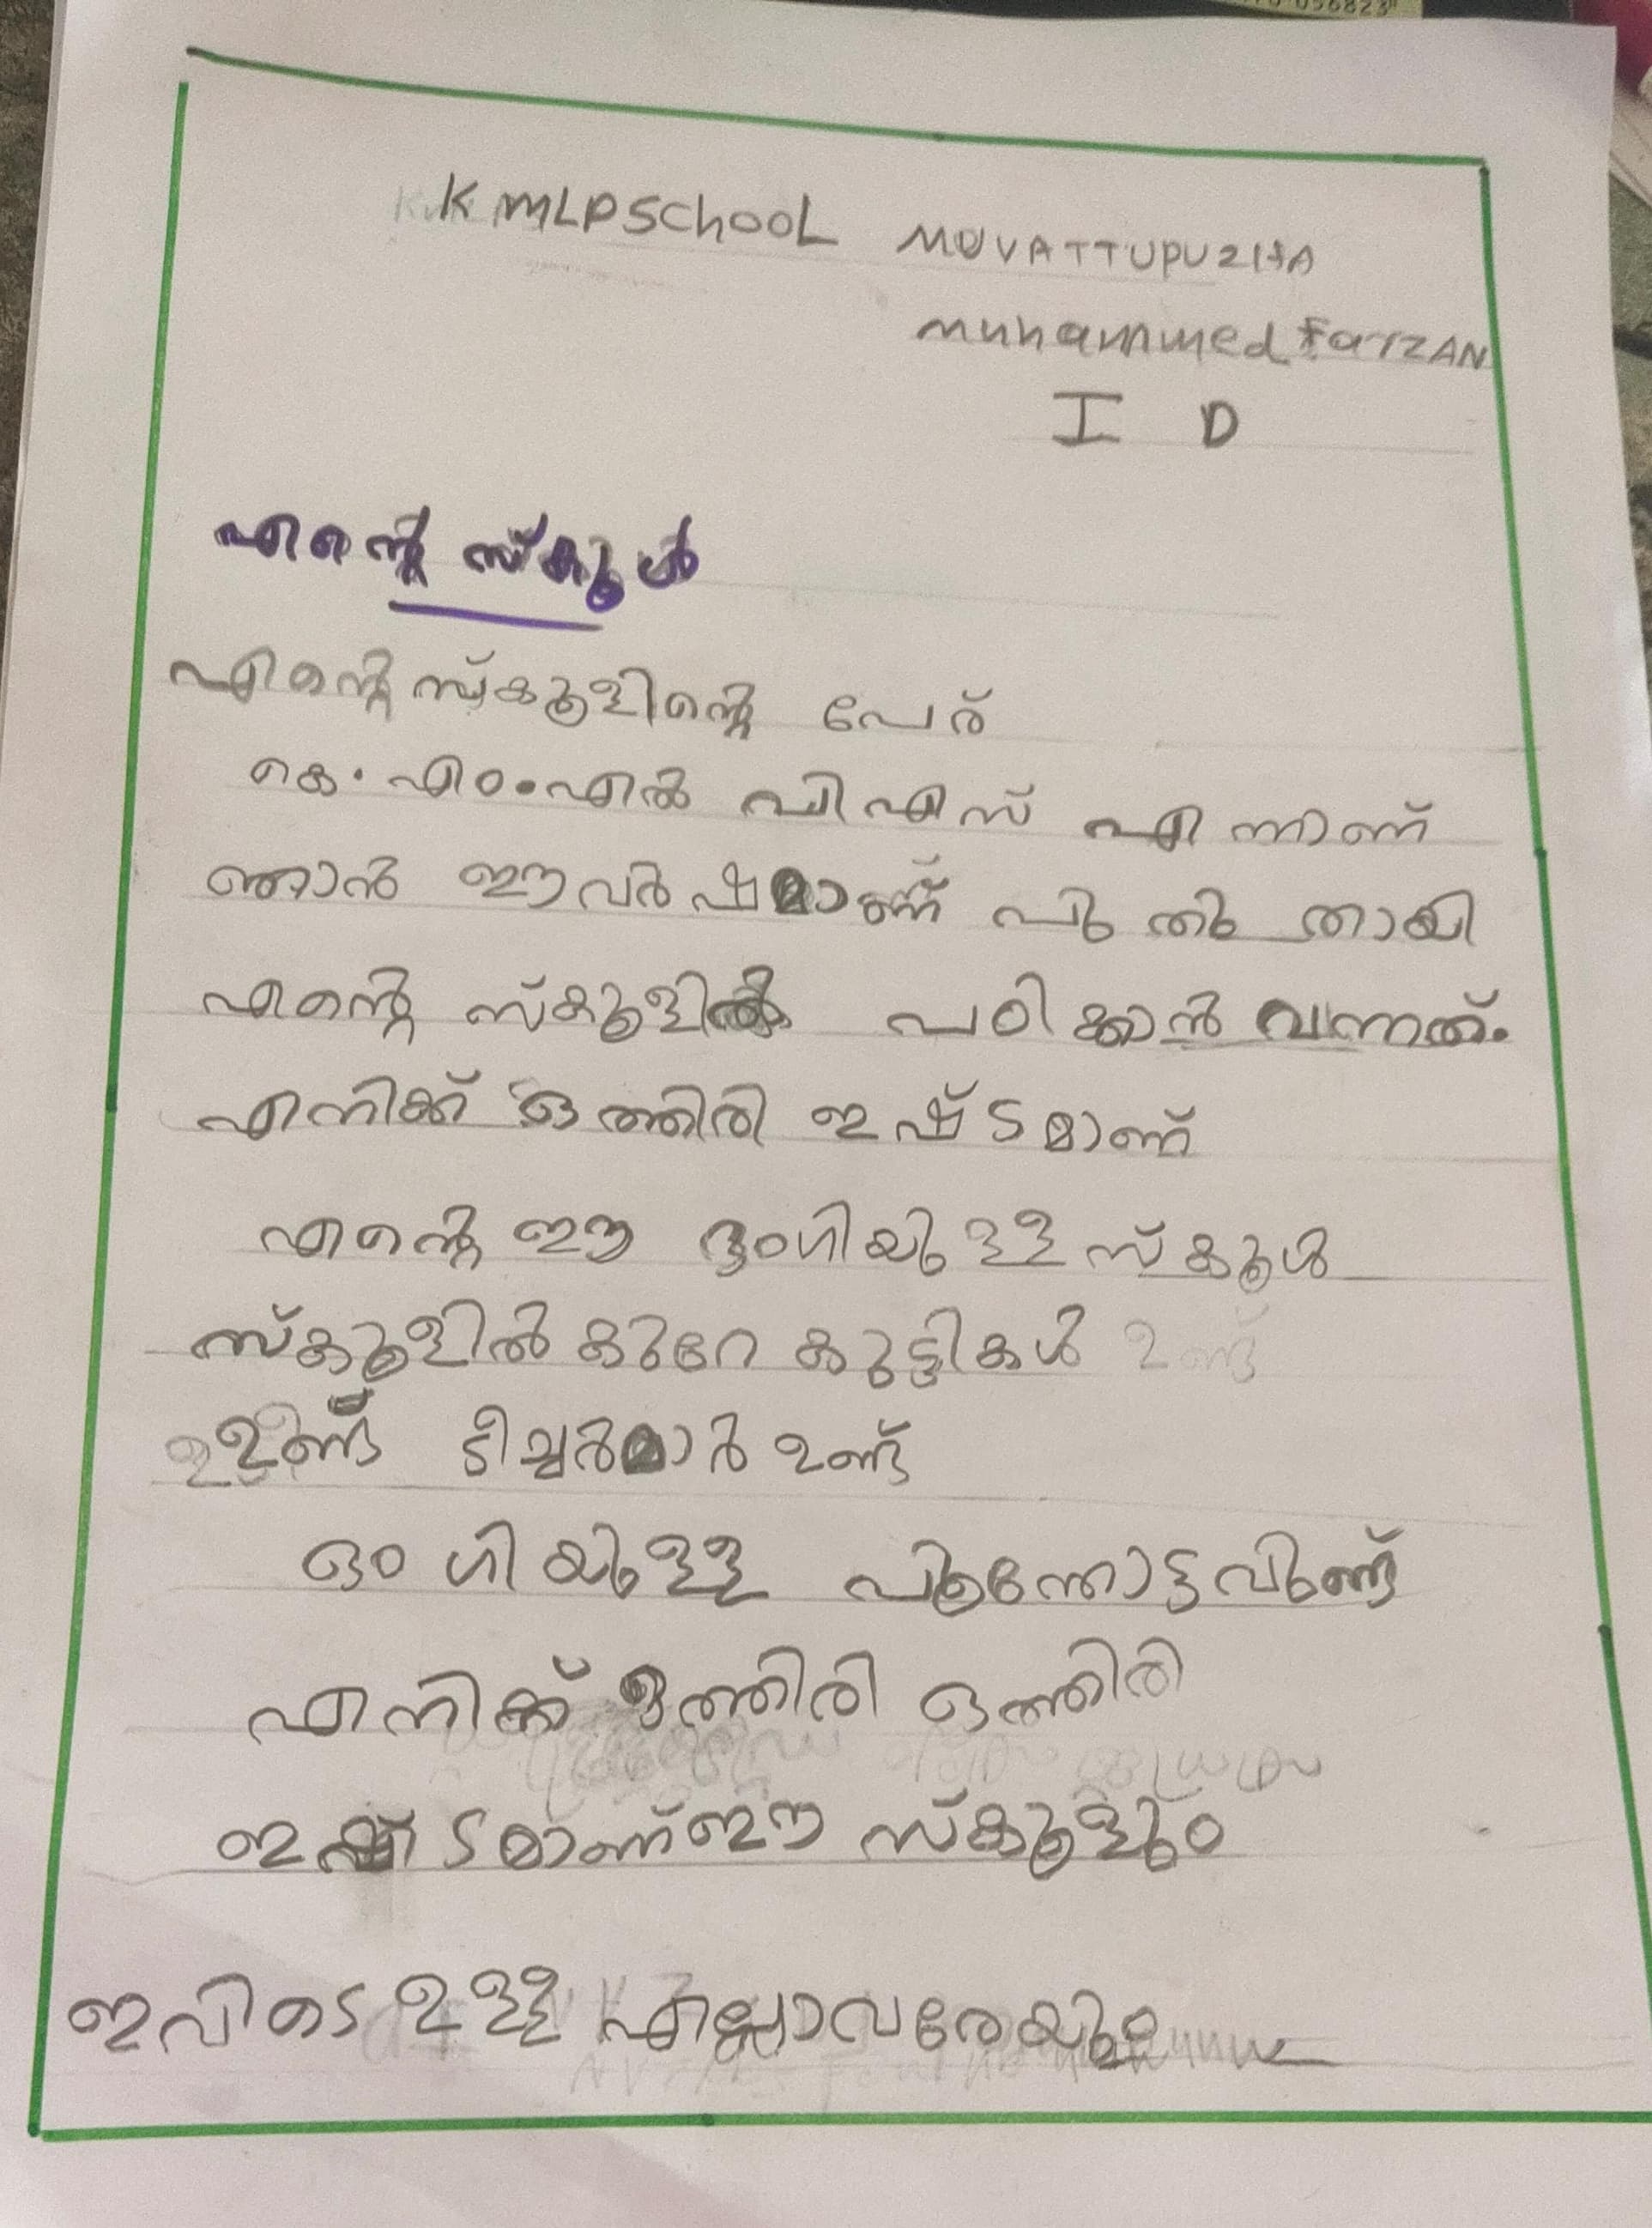 056823
KMLPSChOOL MUVATTUPUZHA
muhammed FarZAN
I D
എന്റെ സ്കൂൾ
എന്റെ സ്കൂളിന്റെ പേര്
കെ.എം.എൽ പി എസ് എന്നാണ്
ഞാൻ ഈ വർഷമാണ് പുതു തായി
എന്റെ സ്കൂളിൽ പഠിക്കാൻ വന്നത്.
എനിക്ക് ഒത്തിരി ഇഷ്ടമാണ്
എന്റെ ഈ ഭംഗിയുള്ള സ്കൂൾ
സ്കൂളിൽ കുറേ കുട്ടികൾ ഉണ്ട്
ഉണ്ട് ടീച്ചർമാർ ഉണ്ട്
ഭംഗിയുള്ള പൂന്തോട്ടവുണ്ട്
എനിക്ക് ഒത്തിരി ഒത്തിരി
ഇഷ്ടമാണ് ഈ സ്കൂളും
ഇവിടെ ഉള്ള എല്ലാവരേയും